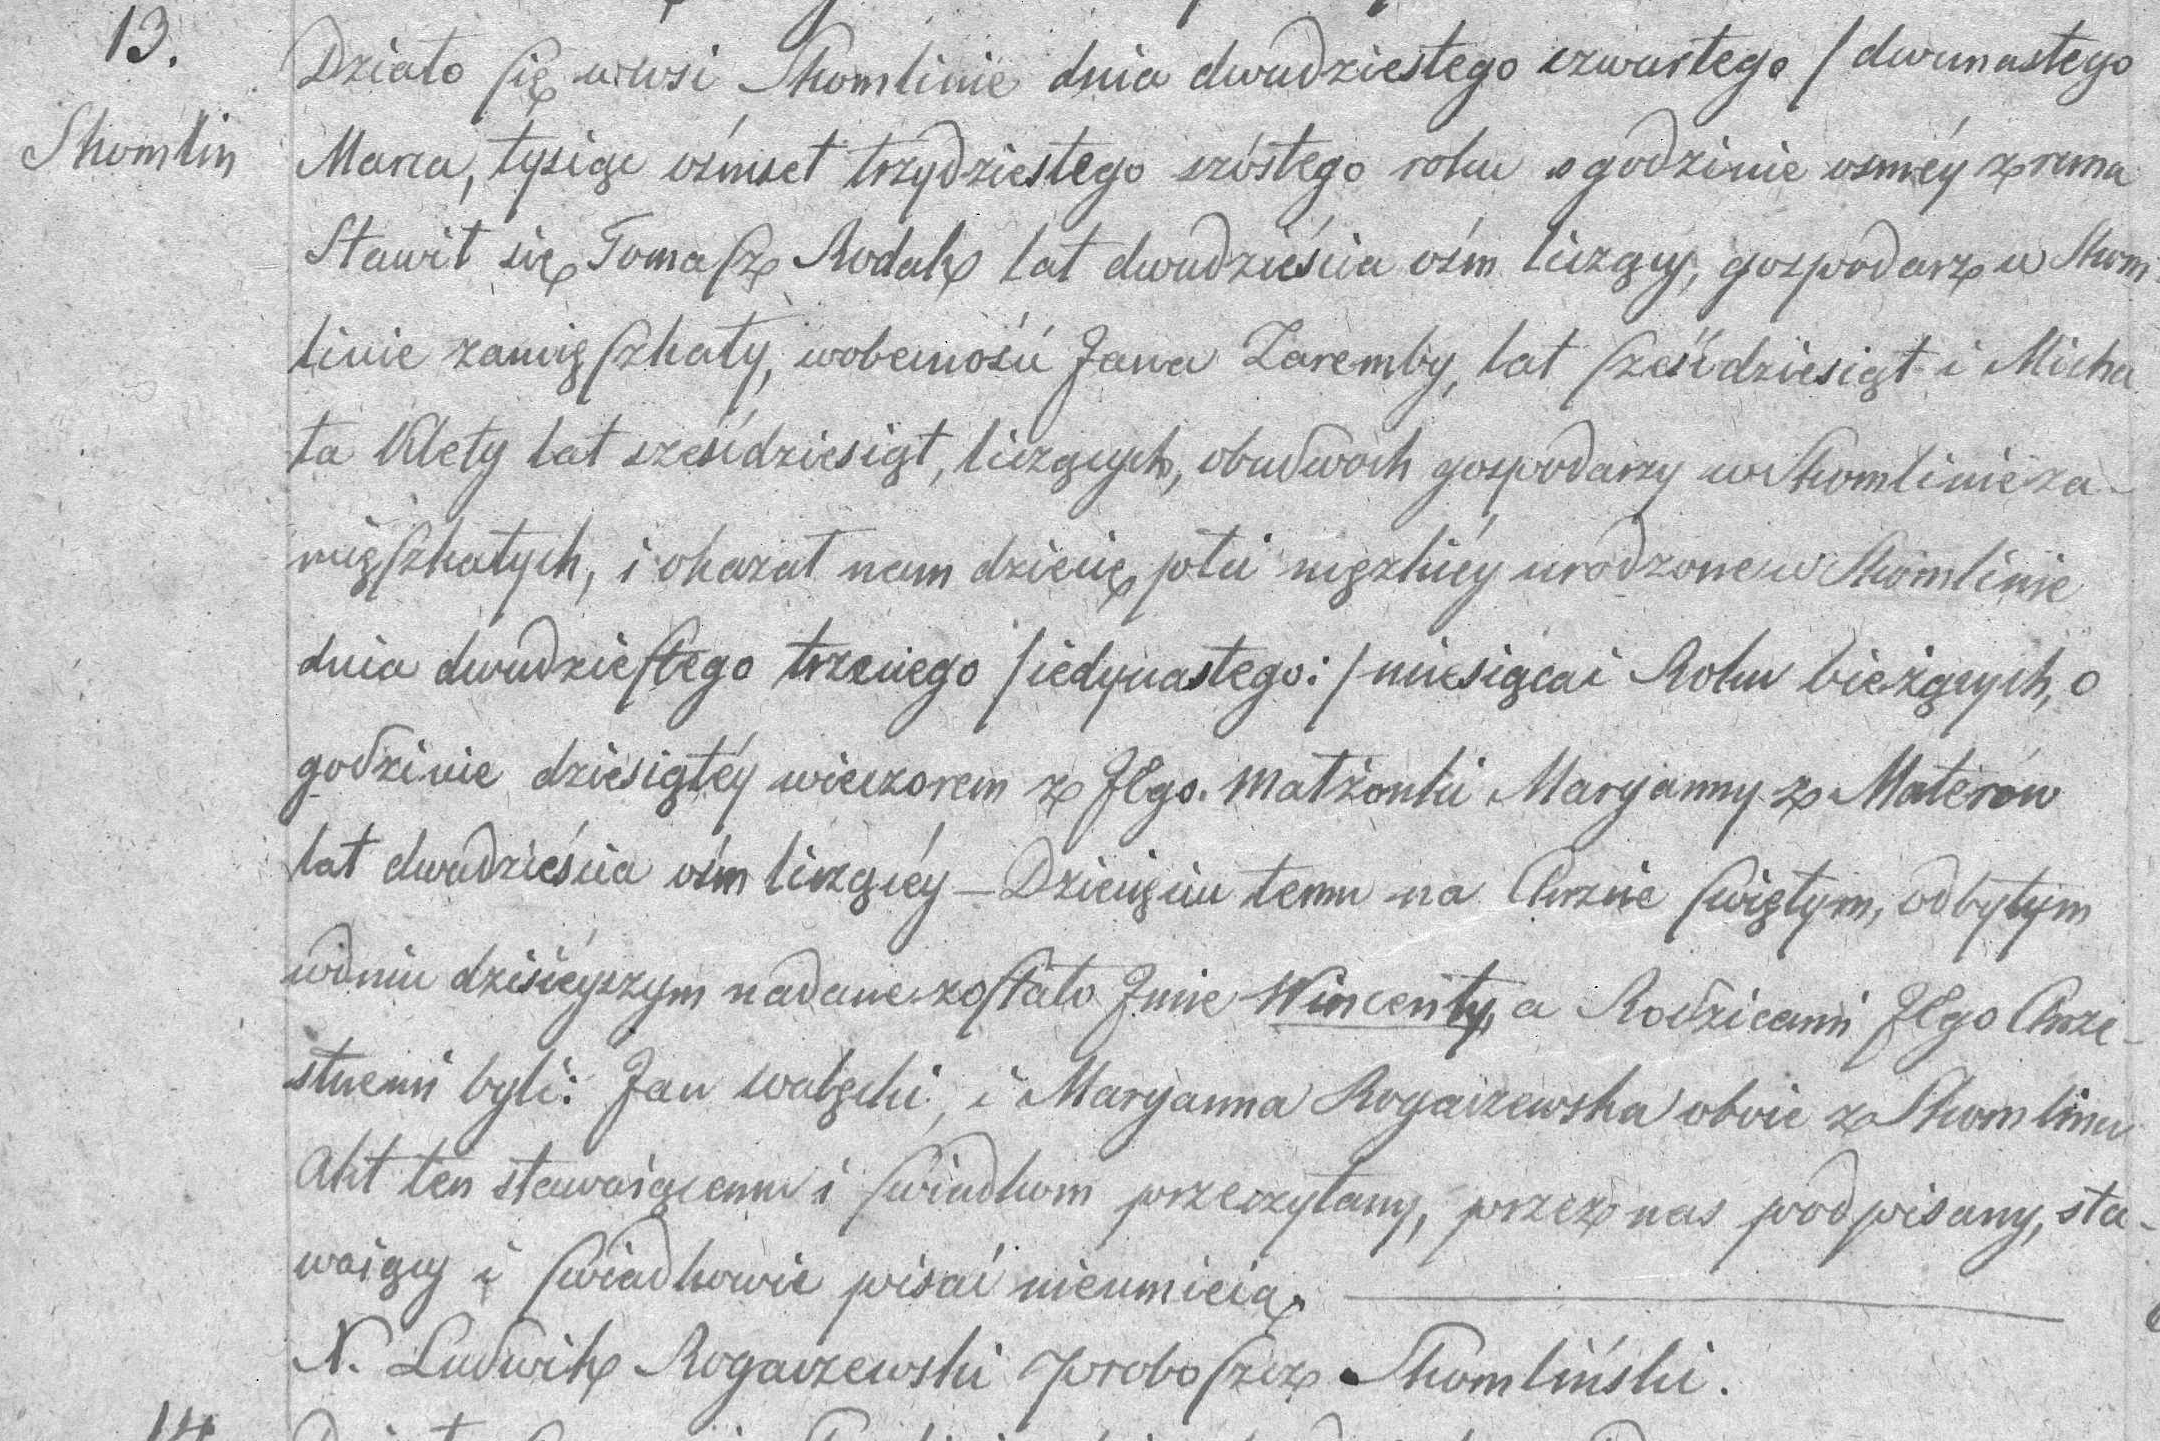 13.
Skomlin
Działo się w wsi Skomlinie dnia dwudziestego czwartego / dwunastego
Marca, tysiąc ośmset trzydziestego szóstego roku o godzinie osméy z rana
Stawił się Tomasz Rodak lat dwadzieścia ośm liczący, gospodarz w Skom-
linie zamięszkały, w obecności Jana Zaremby, lat sześćdziesiąt i Micha
ła Klety lat sześćdziesiąt, liczących, obudwóch gospodarzy w Skomlinie za-
mięszkałych, i okazał nam dziecię płci męzkiéy urodzone w Skomlinie
dnia dwudziestego trzeciego / iedynastego :/ miesiąca i Roku bieżących, o
godzinie dziesiątéy wieczorem z Jego. Małżonki Maryanny z Materów
lat dwadzieścia ośm liczącéy — Dziecięciu temu na Chrzcie świętym, odbytym
w dniu dzisiéyszym nadane zostało Jmie Wincenty, a Rodzicami Jego Chrze-
stnemi byli: Jan Wałęcki, i Maryanna Rogaczewska oboie z Skomlina
Akt ten stawaiącemu i świadkom przeczytany, przez nas podpisany, sta-
waiący i świadkowie pisać nieumieią.
X. Ludwik Rogaczewski Proboszcz Skomliński.
14